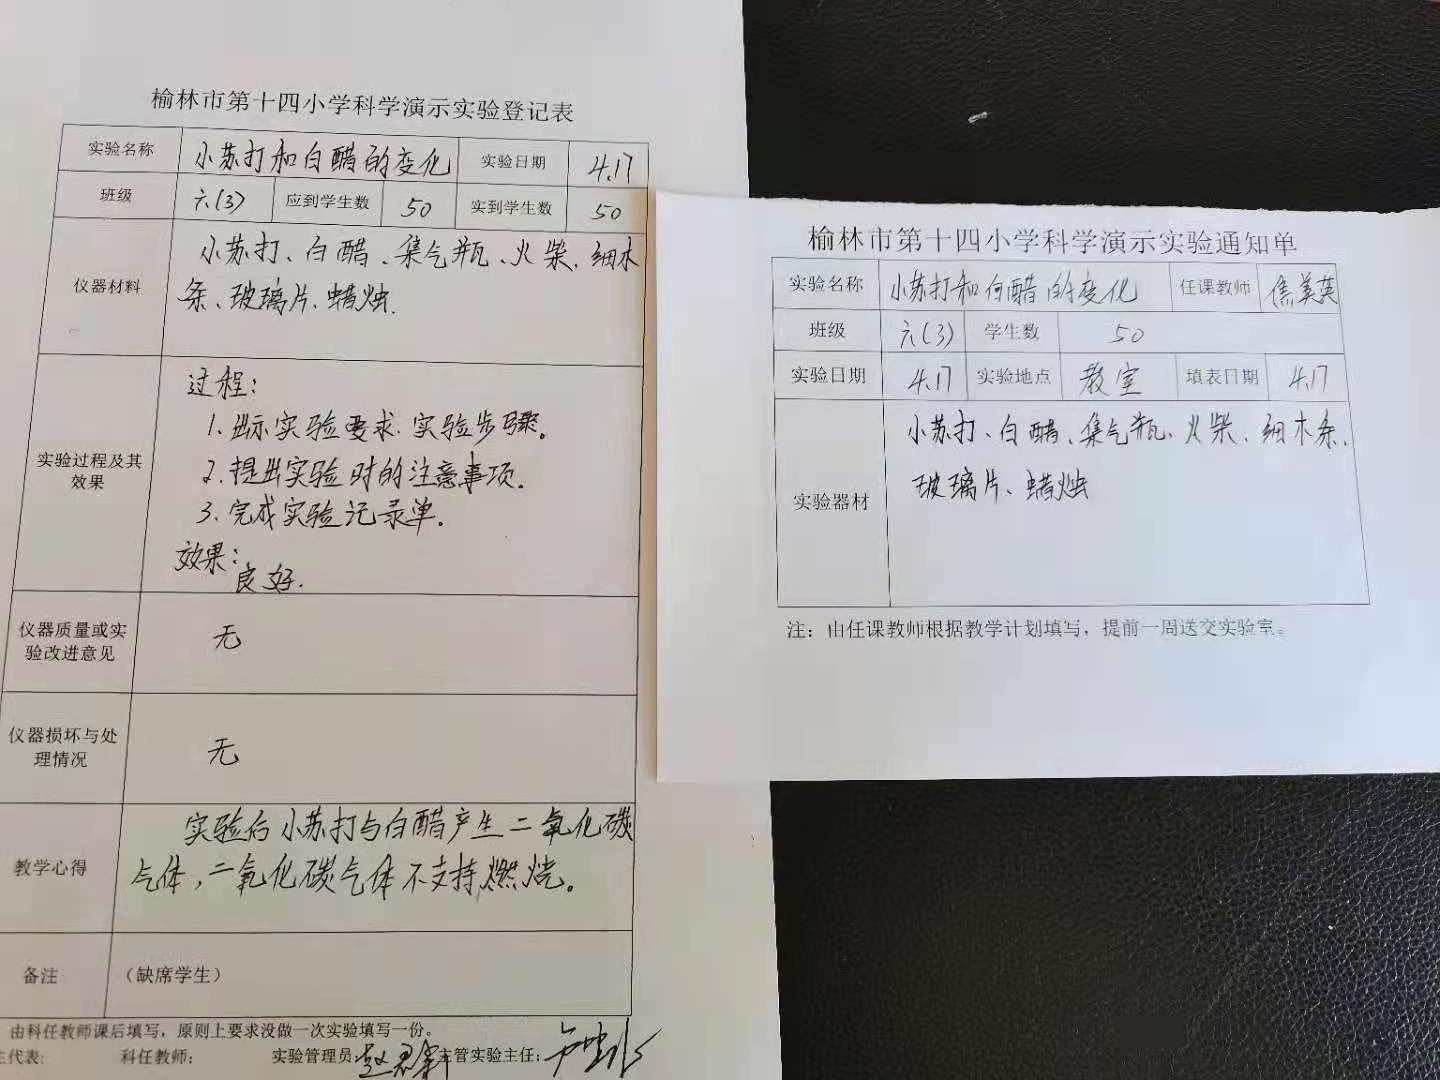 榆林市第十四小学科学演示实验登记表
实验名称 小苏打和白醋的变化 实验日期 4.17
班级 六(3) 应到学生数 50 实到学生数 50
仪器材料
小苏打、白醋、集气瓶、火柴、细木
条、玻璃片、蜡烛.
实验过程及其
效果
过程:
1.出示实验要求、实验步骤。
2.提出实验时的注意事项.
3.完成实验记录单.
效果:
良好.
仪器质量或实
验改进意见
无
仪器损坏与处
理情况
无
教学心得
实验后小苏打与白醋产生二氧化碳
气体,二氧化碳气体不支持燃烧。
备注 (缺席学生)
由科任教师课后填写,原则上要求没做一次实验填写一份。
代表: 科任教师: 实验管理员: 主管实验主任:
榆林市第十四小学科学演示实验通知单
实验名称 小苏打和白醋的变化 任课教师 焦美英
班级 六(3) 学生数 50
实验日期 4.17 实验地点 教室 填表日期 4.17
实验器材
小苏打、白醋、集气瓶、火柴、细木条、
玻璃片、蜡烛
注:由任课教师根据教学计划填写,提前一周送交实验室。